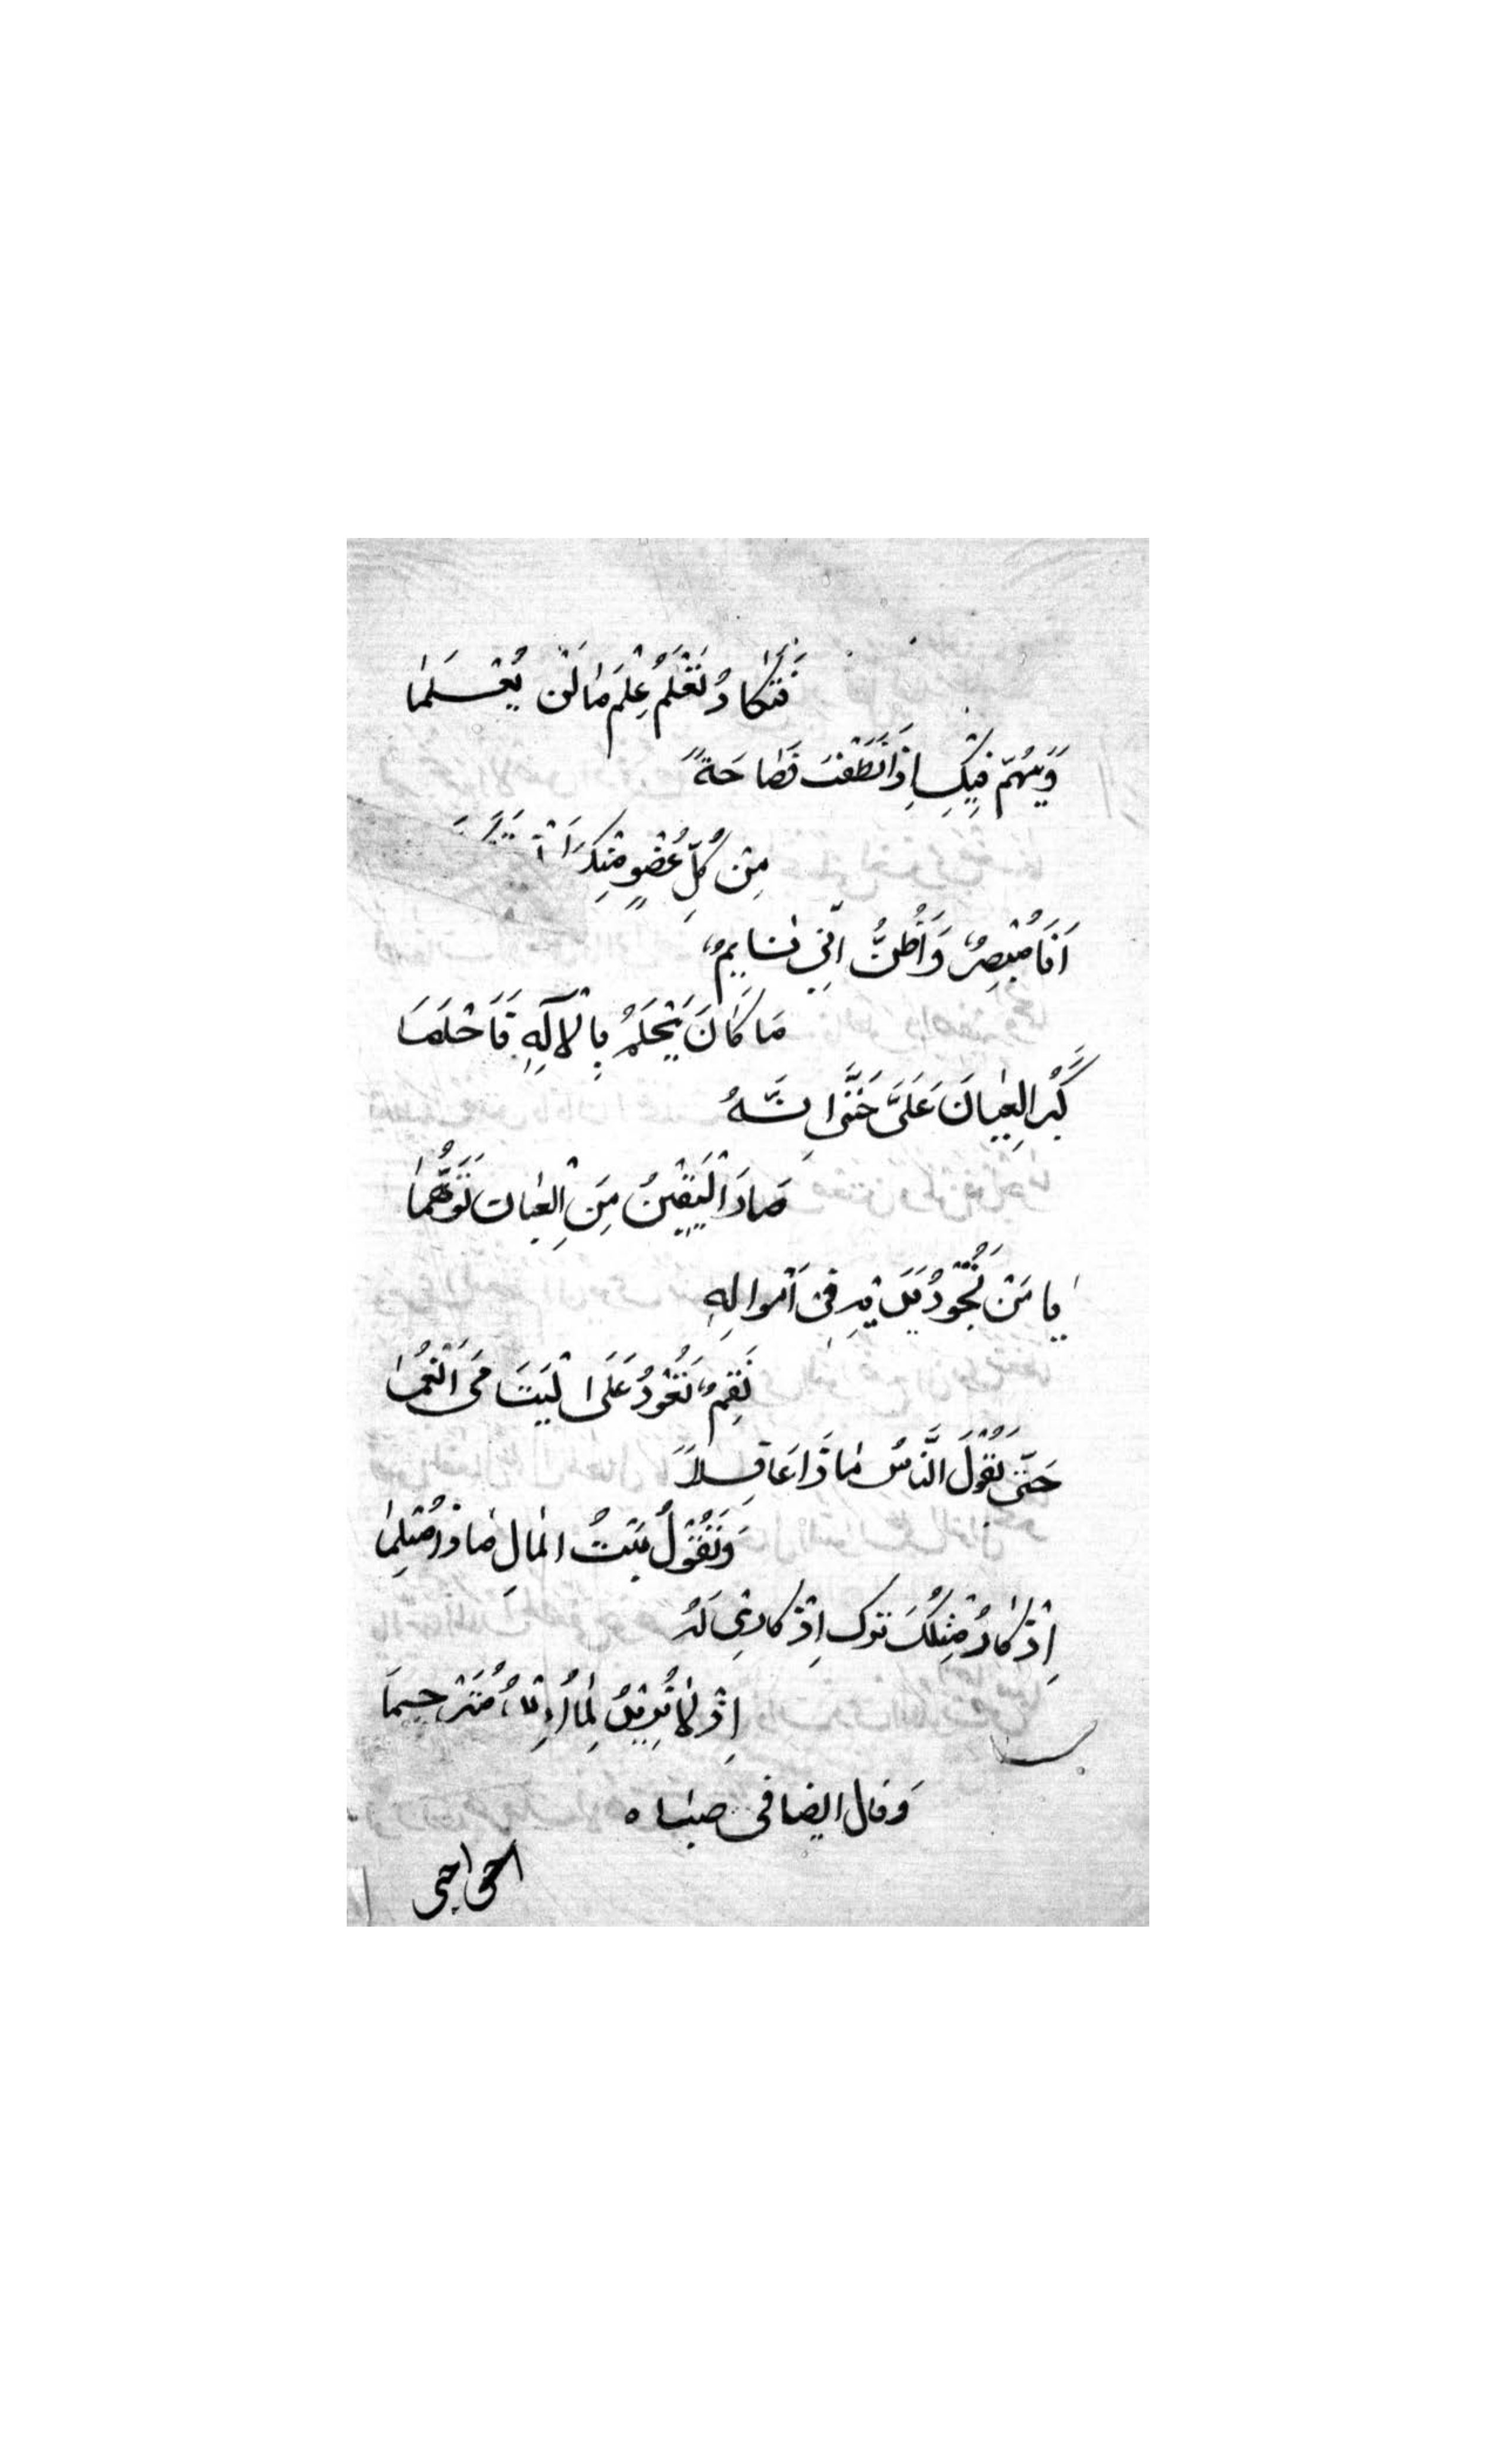 فَتَكَادُ تَعْلَمُ عِلْمَ مَا لَنْ يُعْلَمَا
وَيَهُمّ فِيْكَ اِذَا نَطَقْتَ فَصَاحَةً
مِنْ كُلِّ عُضْوٍ مِنْكَ اَنْ
اَنَا مُبْصِرٌ وَاَظُنُّ اَنّي نَايِمٌ
مَا كَانَ يَحْلَمُ بِالْاِلَهِ فَاَحْلَمَا
كَبُرَ العِيَانَ عَلَىَّ حَتَّى اِنَّهُ
صَارَ الْيَقِيْنُ مِنَ العِيَانِ تَوَهُّمَا
يَا مَنْ لِجُودِ يَدَيْهِ فِى اَمْوالِهِ
نَقِمٌ تَعُودُ عَلَى اليَتَامَى اَنْعُمَا
حَتَّى يَقُولَ النَّاسُ مَاذَا عَاقِلاً
وَيَقُولُ بَيْتُ المَالِ مَاذَا مُسْلِمَا
اِذْكَارُ مِثْلِكَ تَرْكُ اِذْكَارِى لَهُ
اِذْ لَا تُرِيْدُ لِمَا اُرِيْدُ مُتَرْجِمَا
وَقال ايضا فى صباه